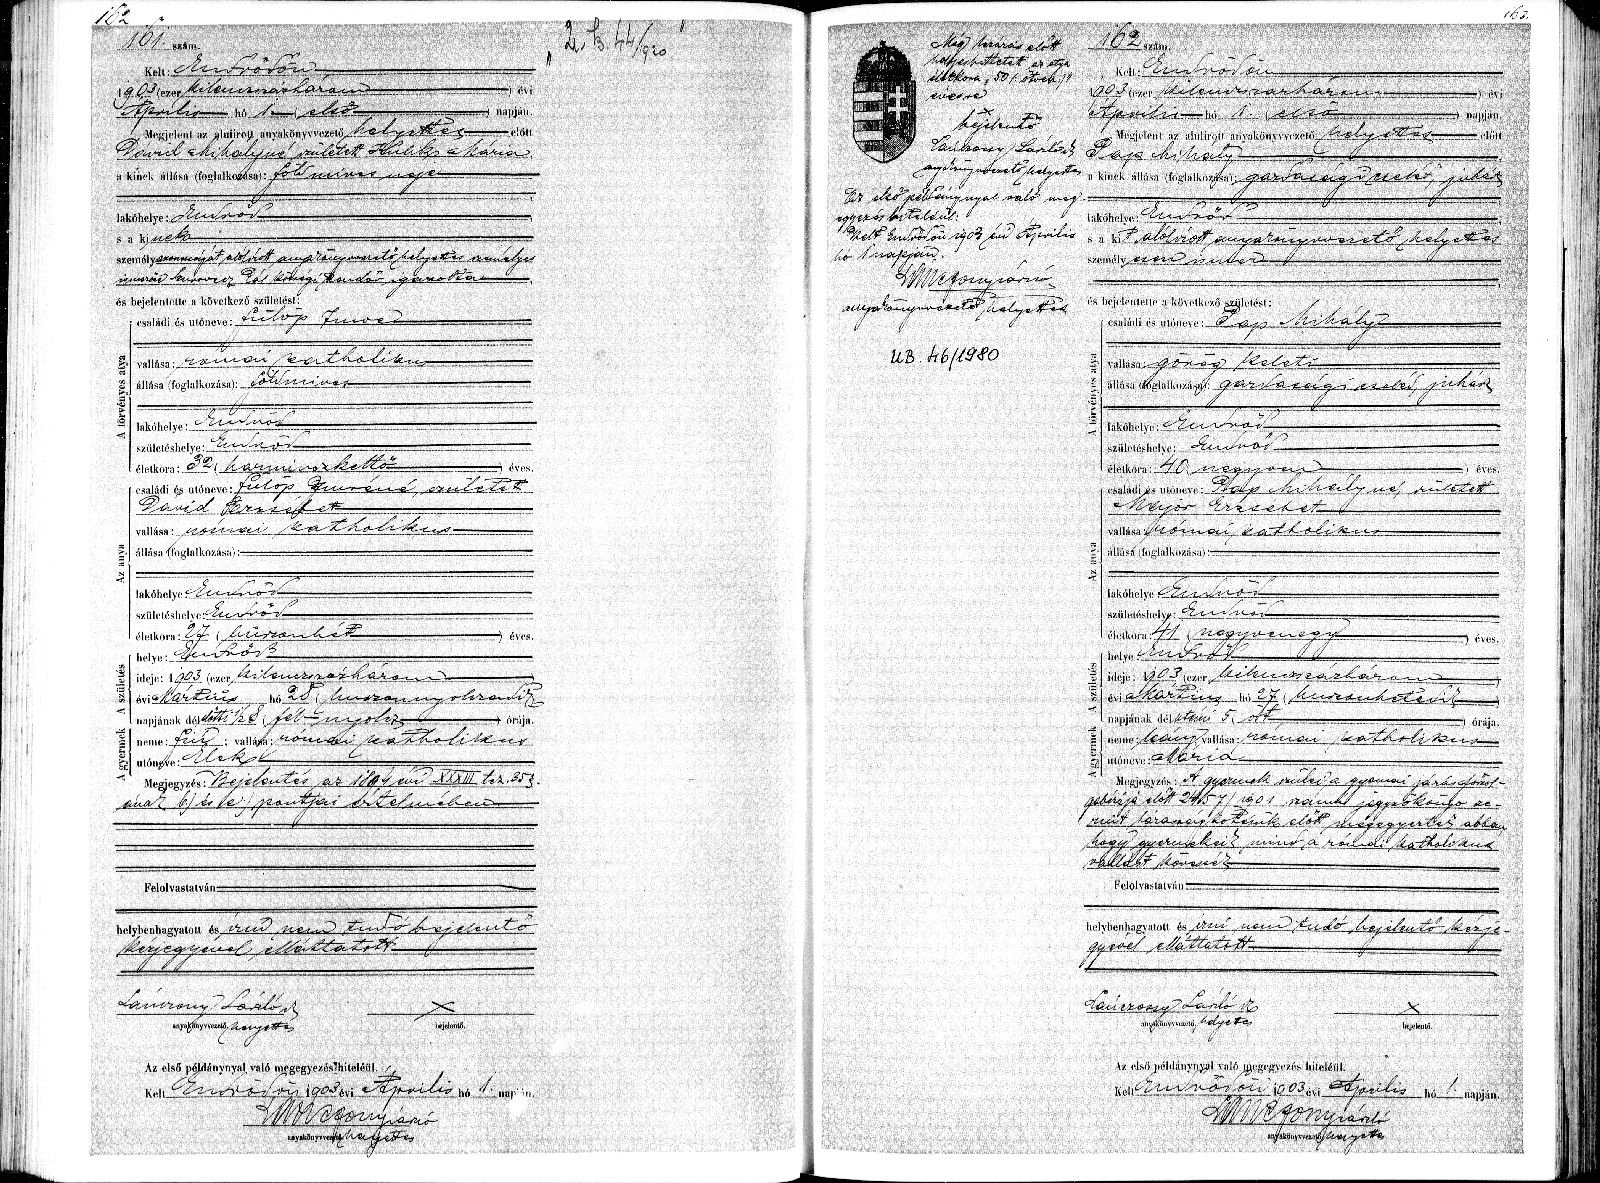 162
161. szám.
2. B. 44/920
Kelt: Endrődön
1903 (ezer kilenczszázhárom) évi
Április hó 1. (első) napján.
Megjelent az alulirott anyakönyvvezető helyettes előtt
Dávid Mihályné született Mária
a kinek állása (foglalkozása): földmives neje
lakóhelye: Endrőd
s a kinek
személyazonosságát alólirott anyakönyvvezető helyettes személyes
és bejelentette a következő születést:
A törvényes atya
családi és utóneve: Fülöp Imre
vallása: római katholikus
állása (foglalkozása): földmives
lakóhelye: Endrőd
születéshelye: Endrőd
életkora: 32 (harminczkettő) éves.
Az anya
családi és utóneve: Fülöp Imréné, született
Dávid Erzsébet
vallása: római katholikus
állása (foglalkozása):
lakóhelye Endrőd
születéshelye: Endrőd
életkora: 27 (huszonhét) éves.
A születés
helye: Endrőd
ideje: 1903 (ezer kilenczszázhárom)
évi Márczius hó 28 (huszonnyolczadik)
napjának délelőtti 1/2 8 (fél nyolcz) órája.
A gyermek
neme: fiú; vallása: római katholikus
utóneve: Elek
Megjegyzés: Bejelentés az 1894 évi XXXIII tcz. 35 §-
ának b) és e) pontjai értelmében
Felolvastatván
helybenhagyatott és irni nem tudó bejelentő
kézjegyével elláttatott
Lánczony László
anyakönyvvezető, helyettes
x
bejelentő.
Az első példánynyal való megegyezés hiteléül.
Kelt Endrődön 1903 évi Április hó 1. napján.
Lánczony László
anyakönyvvezető helyettes
163.
Még lezárás előtt
helyesbittetett az atya
életkora "50 (ötven)"
évesre
x
bejelentő
Lánczony László
anyakönyvvezető helyettes
Az első példánynyal való meg-
egyezés hiteléül.
Kelt Endrődön 1903 évi Április
hó 1 napján.
Lánczony László
anyakönyvvezető helyettes
UB. 46/1980
162 szám.
Kelt: Endrődön
1903 (ezer kilenczszázhárom) évi
Április hó 1. (első) napján.
Megjelent az alulirott anyakönyvvezető helyettes előtt
Pap Mihály
a kinek állása (foglalkozása): gazdasági cseléd, juhász
lakóhelye: Endrőd
s a kit alólirott anyakönyvvezető helyettes
személyesen ismer
és bejelentette a következő születést:
A törvényes atya
családi és utóneve: Pap Mihály
vallása: görög keleti
állása (foglalkozása): gazdasági cseléd, juhász
lakóhelye: Endrőd
születéshelye: Endrőd
életkora: 40 (negyven) éves.
Az anya
családi és utóneve: Pap Mihályné, született
Major Erzsébet
vallása: római katholikus
állása (foglalkozása):
lakóhelye Endrőd
születéshelye: Endrőd
életkora: 41 (negyvenegy) éves.
A születés
helye: Endrőd
ideje: 1903 (ezer kilenczszázhárom)
évi Márczius hó 27 (huszonhetedik)
napjának délutáni 5 (öt) órája.
A gyermek
neme: leány, vallása: római katholikus
utóneve: Mária
Megjegyzés: A gyermek szülei a gyomai járás főszol-
gabirája előtt 2457/1901 számu jegyzőkönyv sze-
rint házasságkötésük előtt megegyeztek abban
hogy gyermekeik mind a római katholikus
vallást kövessék
Felolvastatván
helybenhagyatott és irni nem tudó bejelentő kézje-
gyével elláttatott
Lánczony László
anyakönyvvezető, helyettes
x
bejelentő.
Az első példánynyal való megegyezés hiteléül.
Kelt Endrődön 1903 évi Április hó 1. napján.
Lánczony László
anyakönyvvezető helyettes